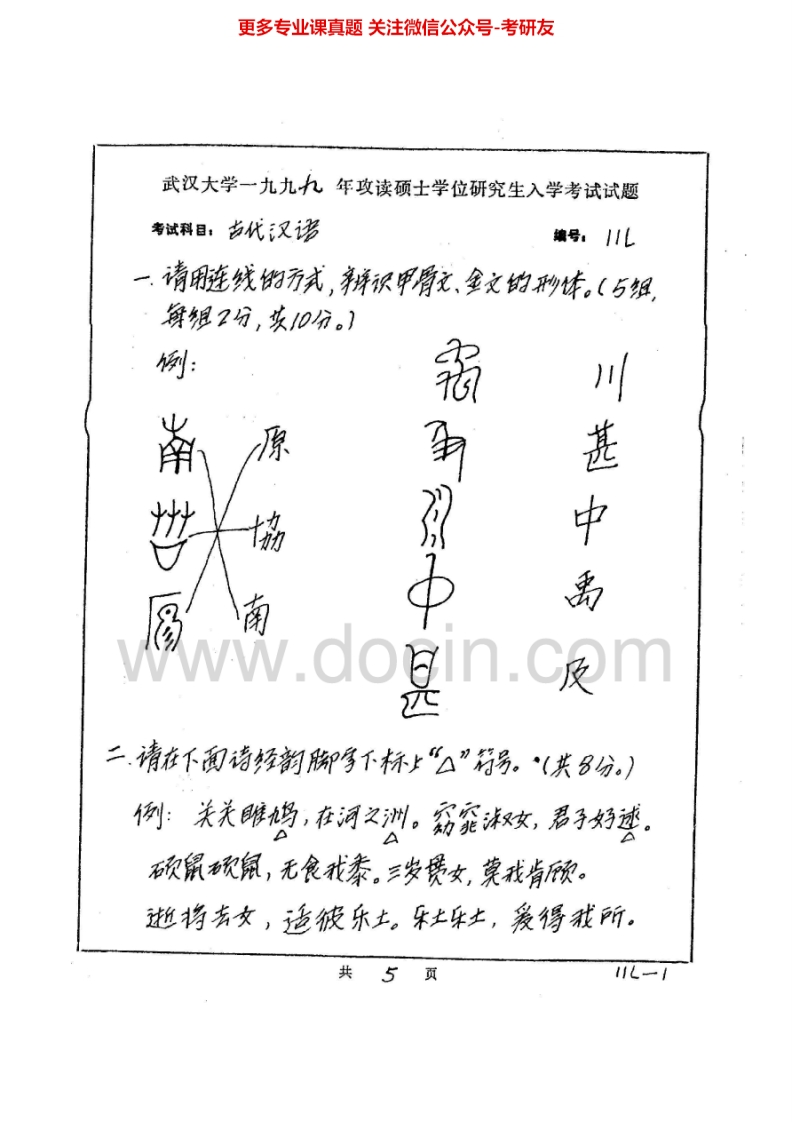 更多专业课真题 关注微信公众号-考研友
武汉大学一九九九年攻读硕士学位研究生入学考试试题
考试科目：古代汉语 编号：11L
一.请用连线的方式,辨识甲骨文、金文的形体。(5组,
每组2分,共10分。)
例：
川
原 甚
協 中
南 禹
及
www.docin.com
二.请在下面诗经韵脚字下标上“△”符号。(共8分。)
例：关关雎鸠,在河之洲。窈窕淑女,君子好逑。
△ △ △
硕鼠硕鼠,无食我黍。三岁贯女,莫我肯顾。
逝将去女,适彼乐土。乐土乐土,爰得我所。
共 5 页 11L-1